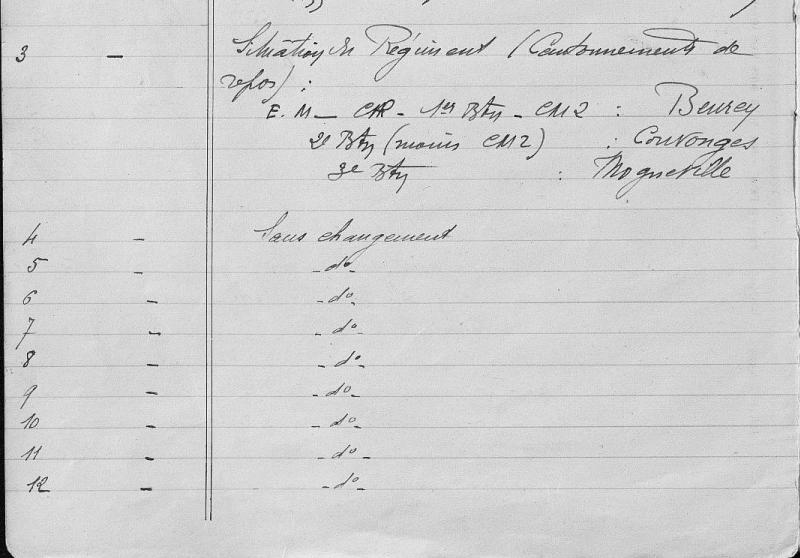 3 - Situation du Régiment (Cantonnements de
repos) :
E. M - CHR - 1er Btn - CM2 : Beurey
2e Btn (moins CM2) : Couvonges
3e Btn : Mogneville
4 - Sans changement
5 - - do -
6 - - do -
7 - - do -
8 - - do -
9 - - do -
10 - - do -
11 - - do -
12 - - do -